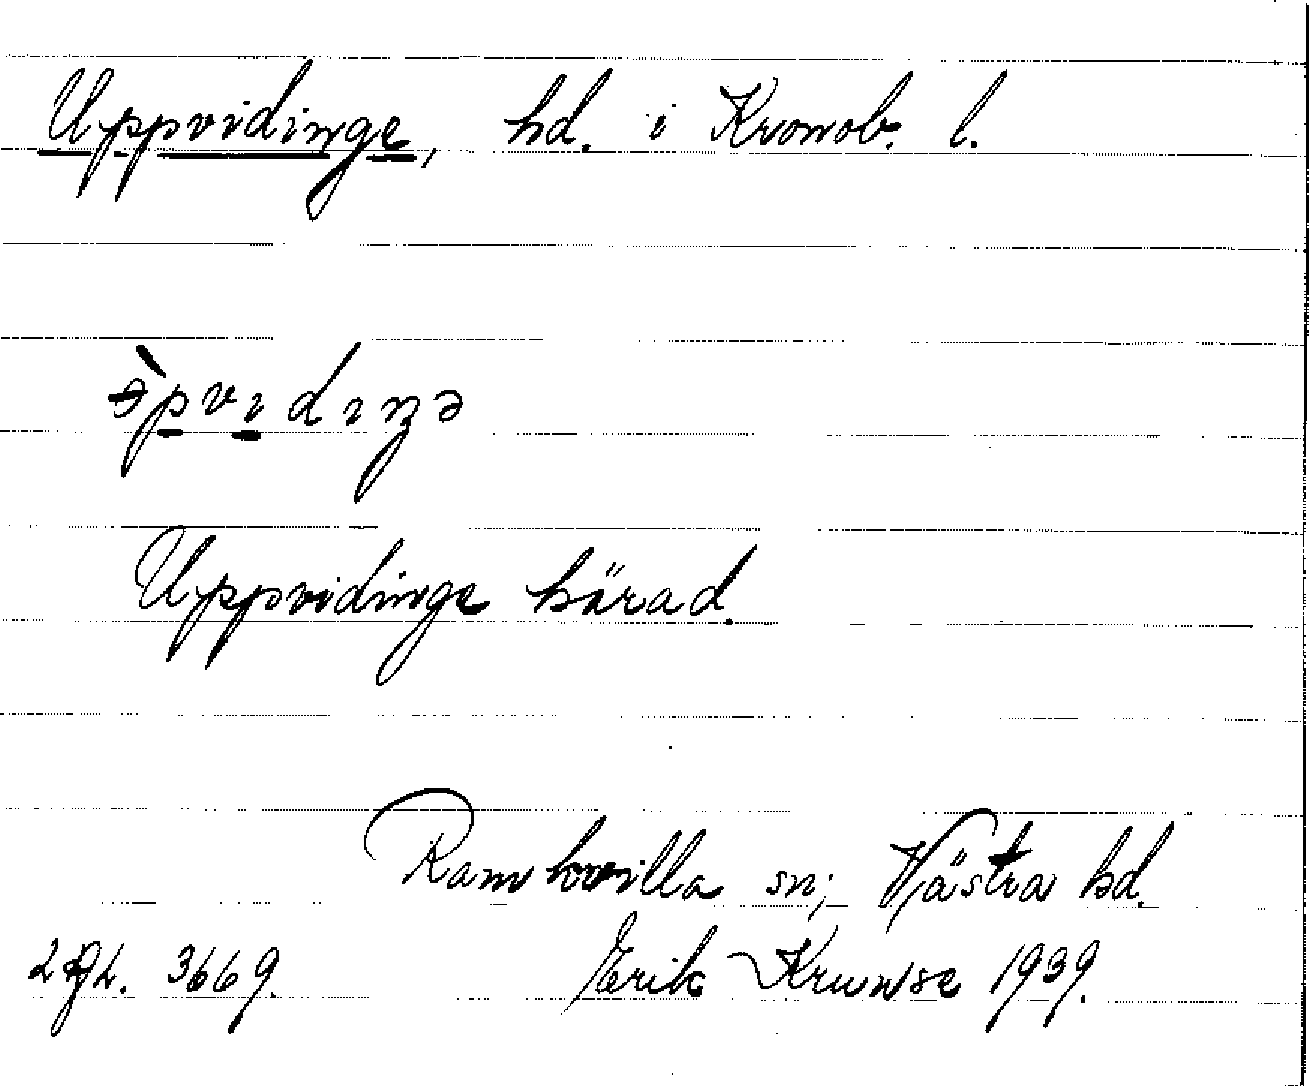 Uppvidinge, hd. i Kronob. l.
Uppvidinge härad.
Ramkvilla sn; Västra hd.
3669.
Erik Krunse 1939.